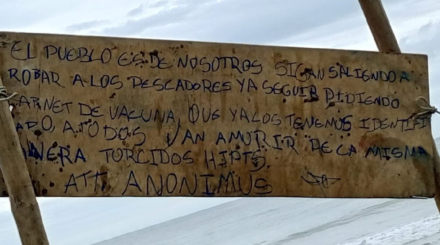 EL PUEBLO ES DE NOSOTROS SIGAN SALIENDO A
ROBAR A LOS PESCADORES YA SEGUIR PIDIENDO
CARNET DE VACUNA, QUE YA LOS TENEMOS IDENTIFI
ADO, A TODOS VAN AMURIR DE LA MISMA
MANERA TORCIDOS HIPTS
ATT ANONIMUS